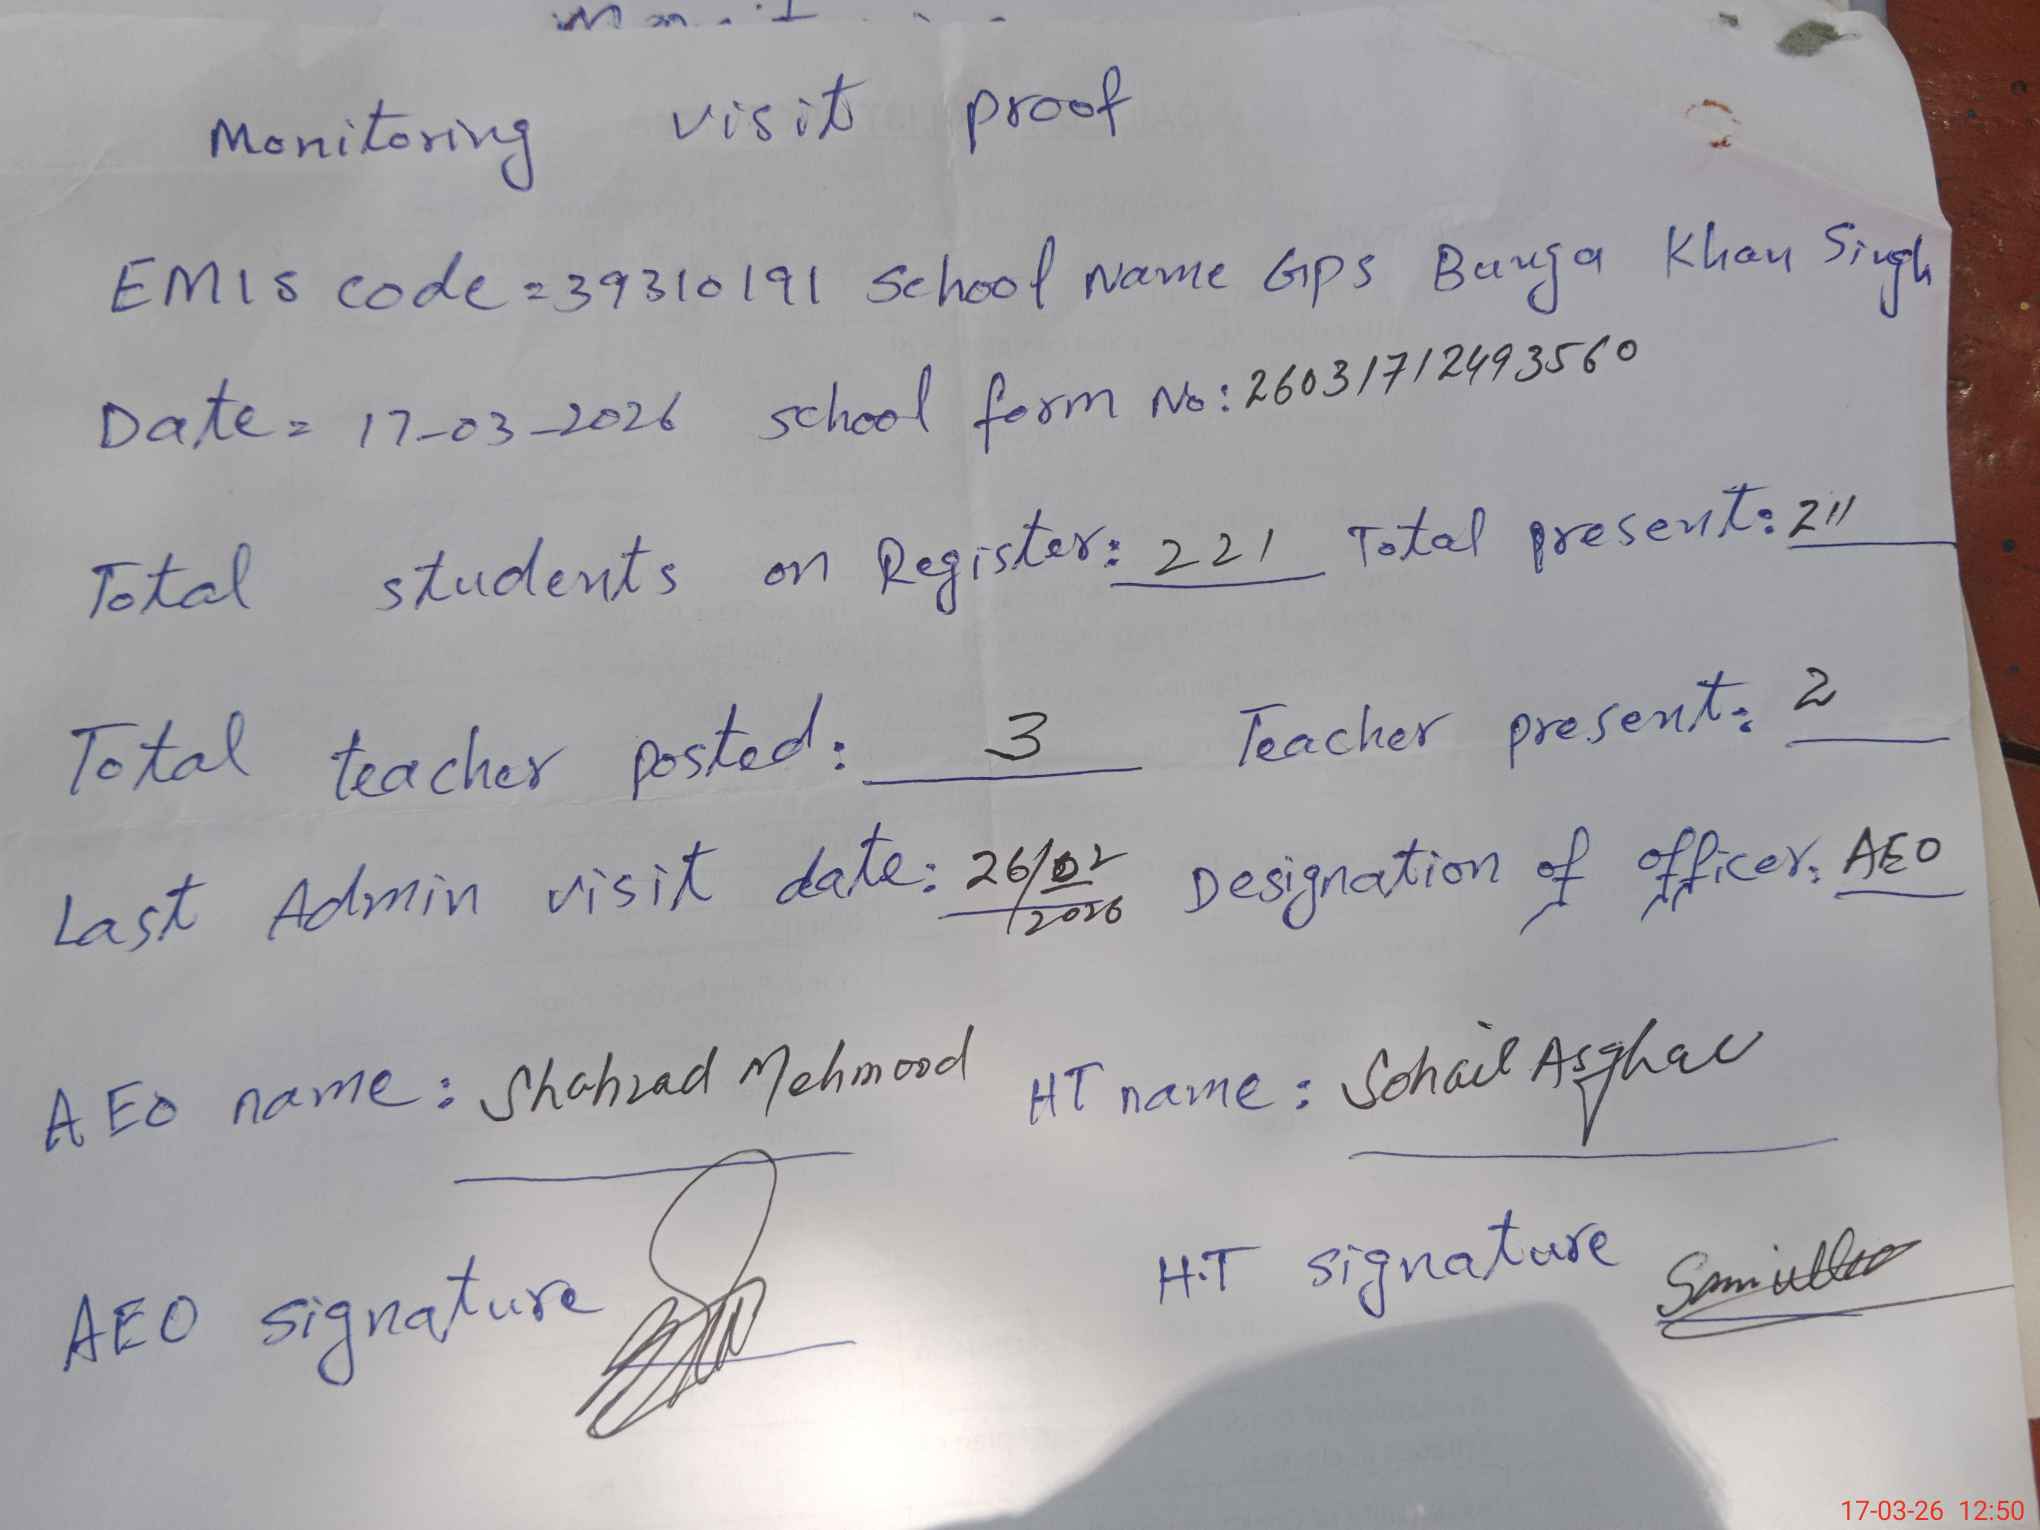 Monitoring visit proof
EMIS code = 39310191 School Name GPS Bunga Khan Singh
Date = 17-03-2026 school form No: 26031712493560
Total students on Register: 221 Total present: 211
Total teacher posted: 3 Teacher present: 2
Last Admin visit date: 26/02/2026 Designation of officer: AEO
AEO name: Shahzad Mehmood HT name: Sohail Asghar
AEO signature H.T signature
17-03-26 12:50